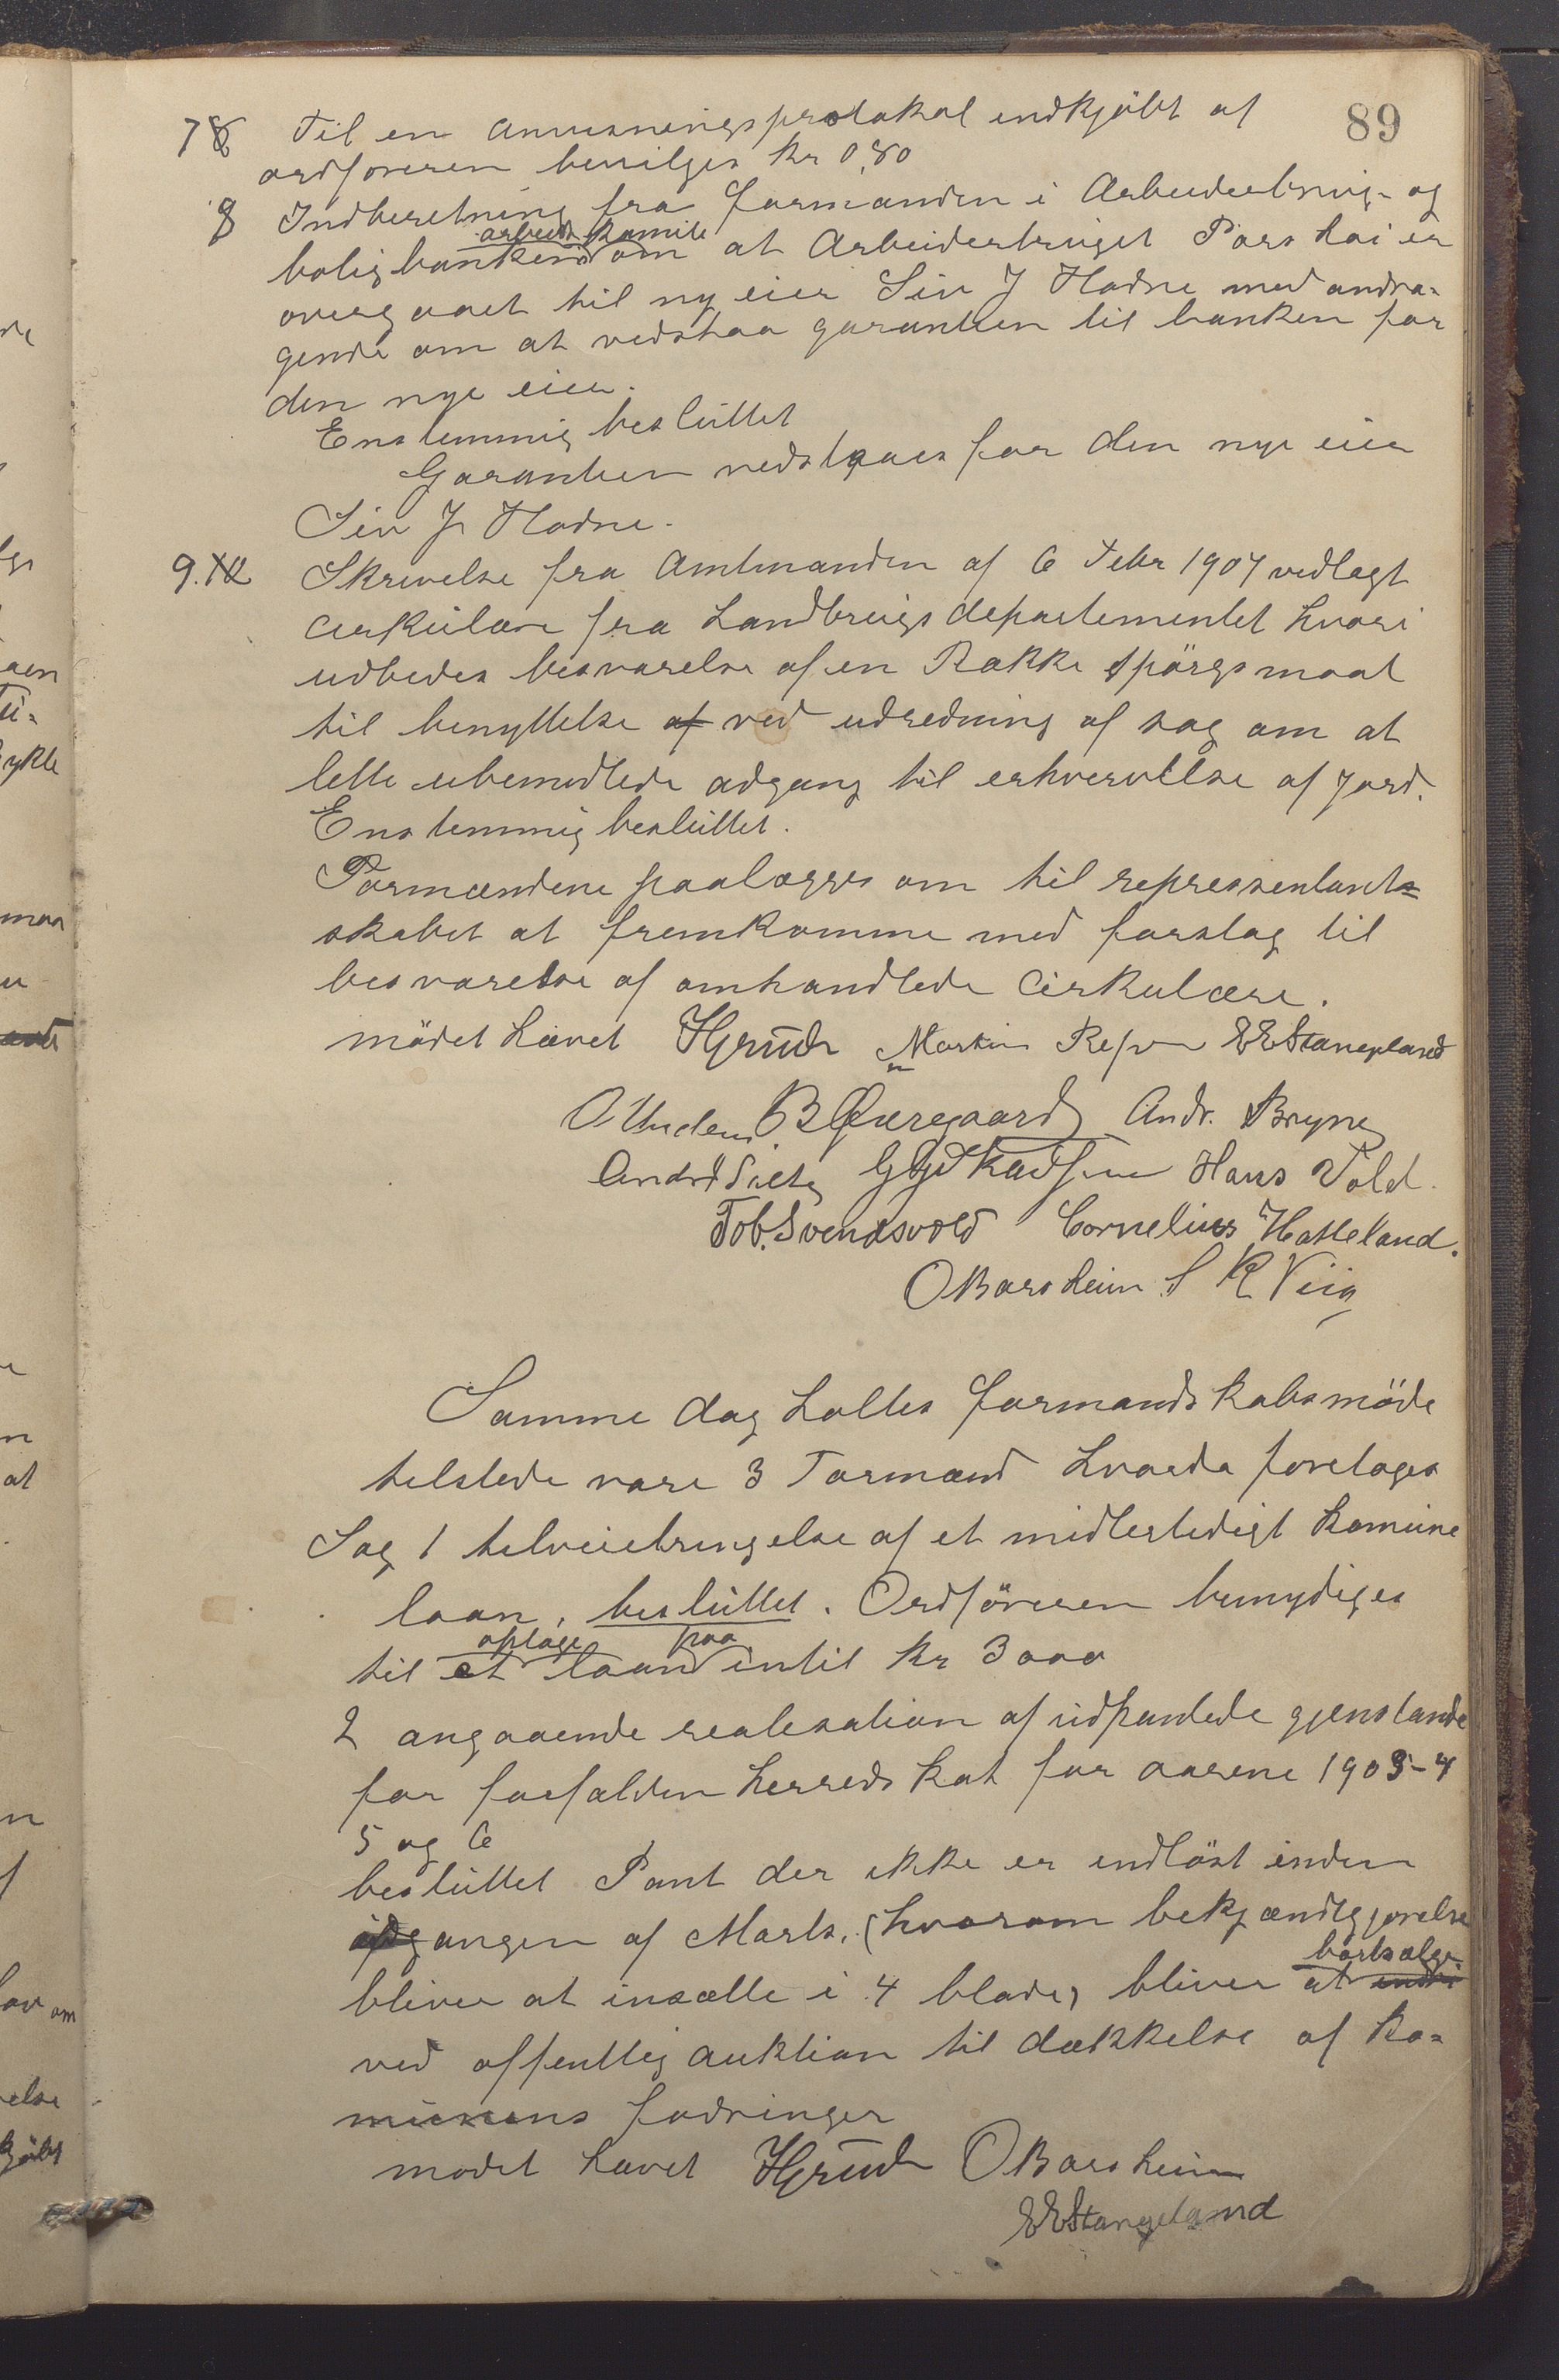 89
7 Til en Anvisningsprotokol indkjøbt af
ordføreren bevilges Kr 0,80
8 Indberetning fra formanden i Arbeiderbrug- og
boligbankens arbeidskomite om at Arbeiderbruget Porskai er
overgaaet til ny eier Siv J Hodne med andra-
gende om at vedstaa garantien til banken for
den nye eier.
Enstemmig besluttet
Garantien vedstaaes for den nye eier
Siv J Hodne.
9. Skrivelse fra Amtmanden af 6 Febr 1907 vedlagt
cirkulære fra Landbrugsdepartementet hvori
udbedes besvarelse af en Række spörgsmaal
til benyttelse af ved udredning af sag om at
lette ubemidlede adgang til erhvervelse af jord.
Enstemmig besluttet.
Formændene paalægges om til repressentant=
skabet at fremkomme med forslag til
besvarelse af omhandlede Cirkulære.
mödet hævet HGrude Martin Refsn EEStangeland
OUndem B Øveregaard Andr. Bryne
Hans Vold.
Tob. Svendsvold Cornelius Hatteland.
OBorsheim S R Viig
Samme dag holdtes formandskabsmöde
tilstede vare 3 Formænd hvorda foretages
Sag 1 tilveiebringelse af et midlertidigt Komune
laan, besluttet. Ordföreren bemydiges
til optage et laan paa intil Kr 3000
2 angaaende realisation af udpantede gjenstande
for forfalden herredskat for aarene 1903-4
5 og 6
besluttet Pant der ikke er indlöst inden
udgangen af Marts, (hvorom bekjændtgjørelse
bliver at insætte i 4 blade) bliver at bortsælge
ved offentlig auktion til dækkelse af Ko=
munens fodringer
mødet hævet HGrude OBorsheim
EEStangeland